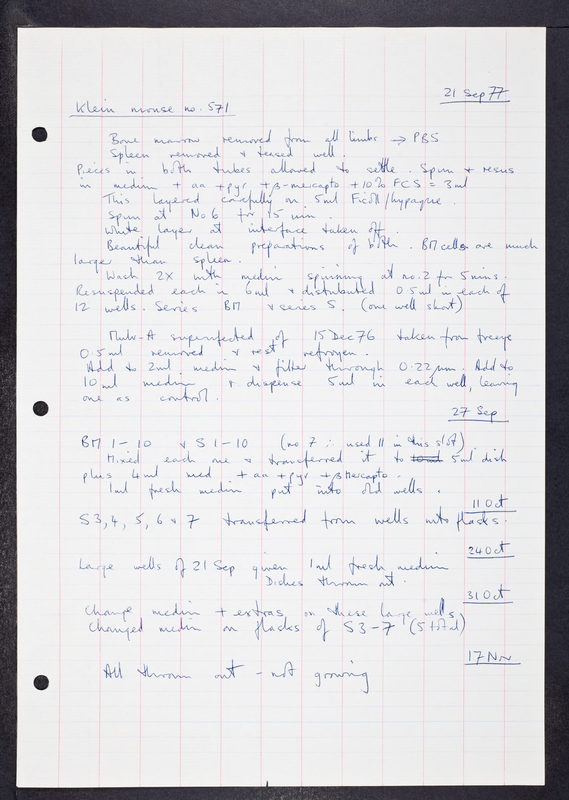 21 Sep 77
Klein mouse no. 571
Bone marrow removed from all limbs → PBS
Spleen removed & teased well.
Pieces in both tubes allowed to settle. Spun & resus
in medium + aa + pyr + β-mercapto + 10% FCS = 3ml
This layered carefully on 5ml Ficoll/hypaque.
Spun at No 6 for 15 min.
White layer at interface taken off.
Beautiful clean preparations of both. BM cells are much
larger than spleen.
Wash 2X with medm spinning at no. 2 for 5 mins.
Resuspended each in 6ml & distributed 0.5ml in each of
12 wells. Series BM & series S. (one well short)
Mulv-A superinfected of 15 Dec 76 taken from freeze
0.5ml removed & rest refrozen.
Add to 2ml medm & filter through 0.22μm. Add to
10ml medium & dispense 5ml in each well, leaving
one as control.
27 Sep
BM 1-10 & S 1-10 (no 7 ∴ used 11 in this slot)
Mixed each one & transferred it to 5ml dish
plus 4ml med + aa + pyr + β Mercapto.
1ml fresh medm put into old wells.
11 Oct
S3, 4, 5, 6 & 7 transferred from wells into flasks.
24 Oct
Large wells of 21 Sep given 1ml fresh medium
Dishes thrown out.
31 Oct
Change medm + extras on these large wells.
Changed medm on flasks of S3-7 (5 total)
17 Nov
All thrown out - not growing